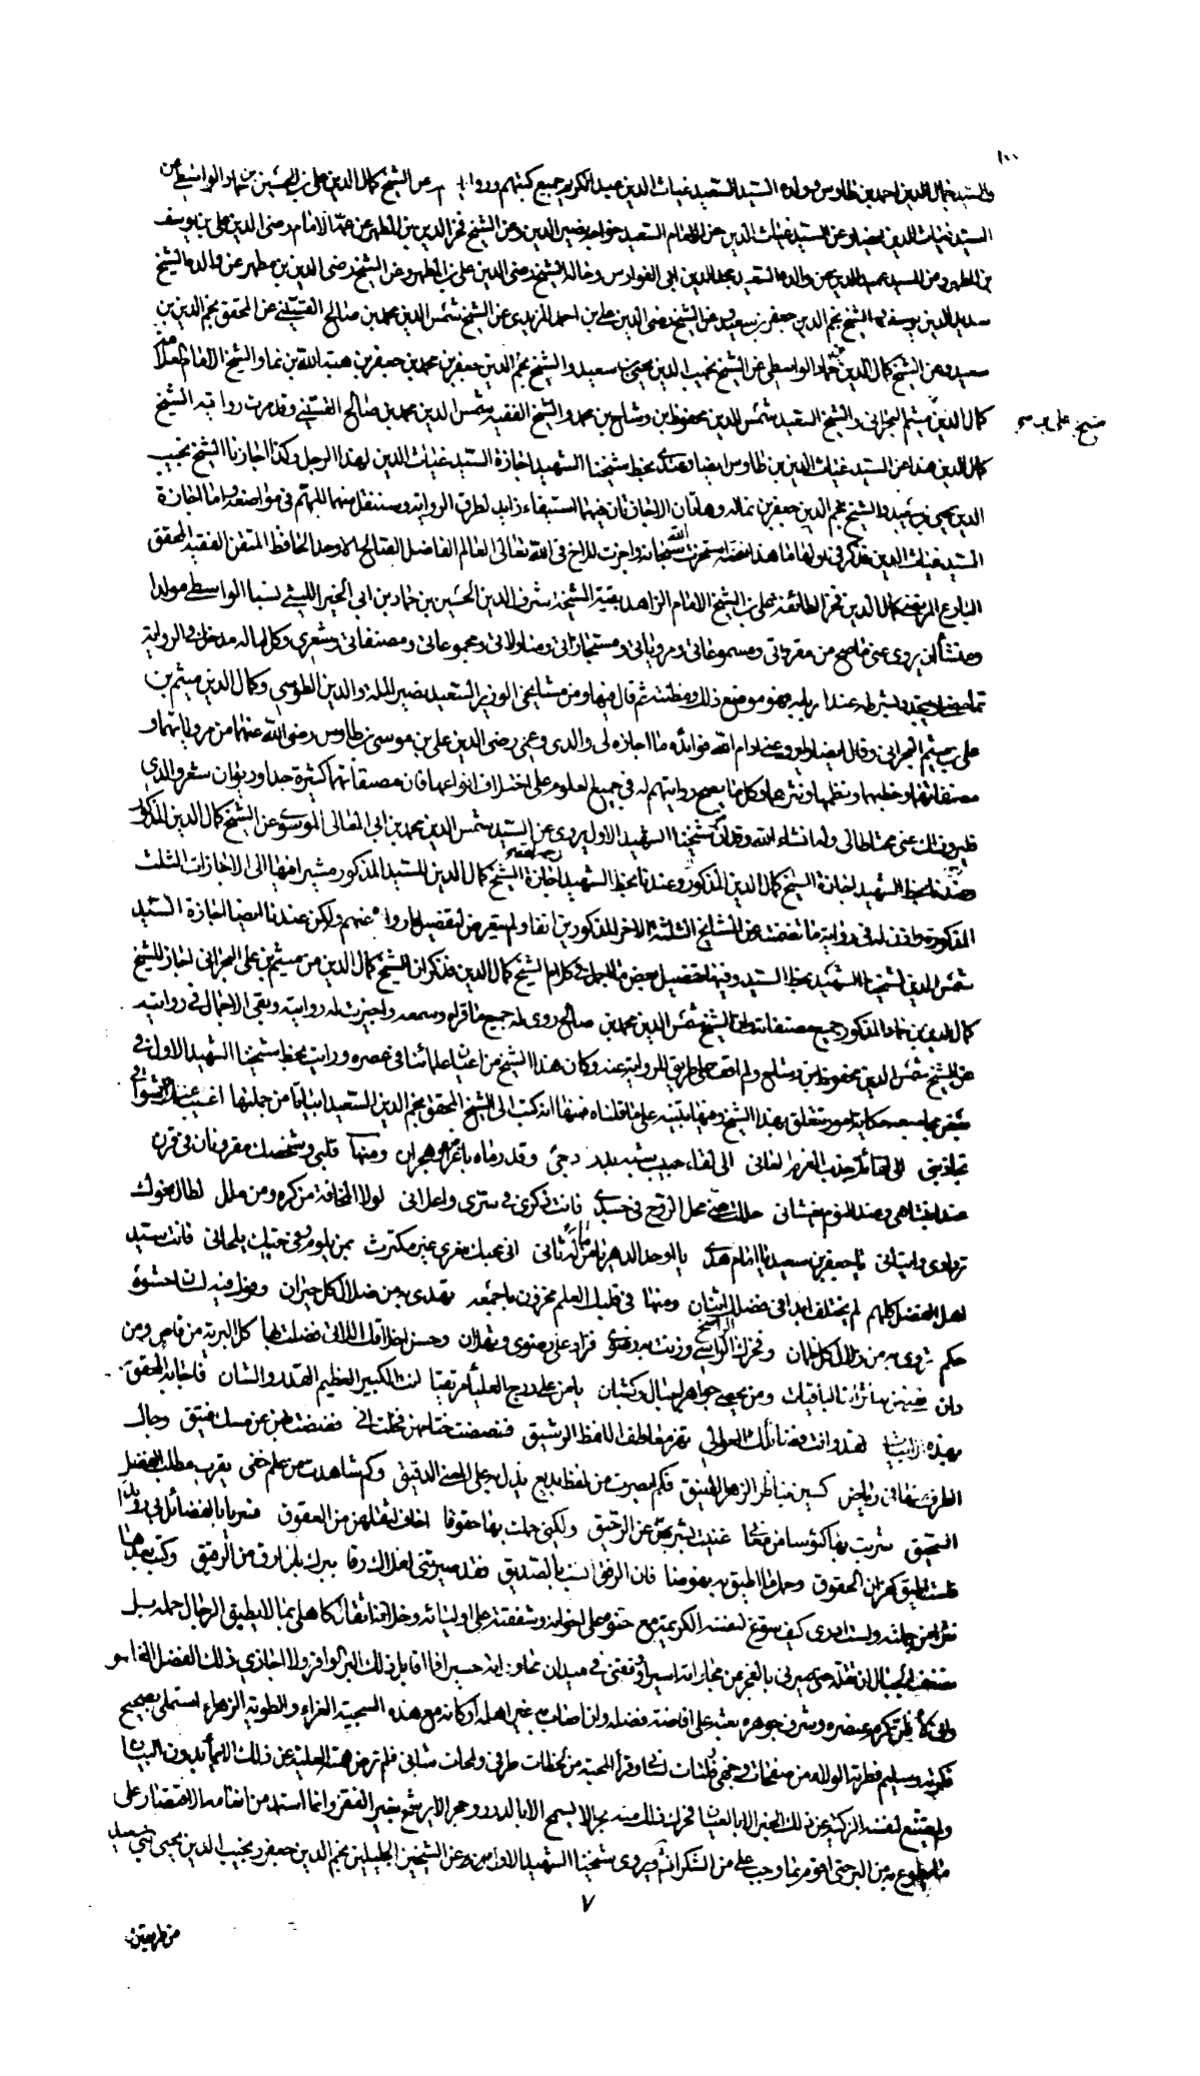 ١٠٠
والسيد جمال الدين احمد بن طاوس وولده السيد السعيد غياث الدين عبد الكريم جميع كتبهم ورواياتهم عن الشيخ كمال الدين علي بن الحسين بن حماد الواسطي عن
السيد غياث الدين ايضا وعن السيد غياث الدين عن الامام السعيد خواجه نصير الدين وعن الشيخ فخر الدين بن المطهر عن عمه الامام رضى الدين علي بن يوسف
بن المطهر وعن السيد عميد الدين عن والده السعيد مجد الدين ابى الفوارس وخاله الشيخ رضى الدين علي بن المطهر وعن الشيخ رضى الدين بن مطهر عن والده الشيخ
سديد الدين يوسف والشيخ نجم الدين جعفر بن سعيد وعن الشيخ رضى الدين علي بن احمد المزيدى عن الشيخ شمس الدين محمد بن صالح القسيني عن المحقق نجم الدين بن
سعيد وعن الشيخ كمال الدين بن حماد الواسطى عن الشيخ نجيب الدين يحيى بن سعيد والشيخ نجم الدين جعفر بن محمد بن جعفر بن هبة الله بن نما والشيخ الامام العلامة
كمال الدين ميثم البحرانى والشيخ السعيد شمس الدين محفوظ بن وشاح بن محمد والشيخ الفقيه شمس الدين محمد بن صالح القسيني وقد مرت رواية الشيخ
كمال الدين هذا عن السيد غياث الدين بن طاوس ايضا وعندى بخط شيخنا الشهيد اجازة السيد غياث الدين لهذا الرجل وكذا اجازتا الشيخ نجيب
الدين يحيى بن سعيد والشيخ نجم الدين جعفر بن نما له وهاتان الاجازتان فيهما استيفاء زايد لطرق الرواية وسننقل منهما المهم فى مواضعه واما اجازة
السيد غياث الدين فذكر فى اولها ما هذا لفظه استخرت الله سبحانه واجزت للاخ فى الله تعالى العالم الفاضل الصالح الاوحد الحافظ المتقن الفقيه المحقق
البارع المرتضى كمال الدين فخر الطائفة علي بن الشيخ الامام الزاهد بقية المشيخة شرف الدين الحسين بن حماد بن ابى الخير الليثى نسبا الواسطي مولدا
ومنشأ ان يروى عنى ما صح من مقرواتى ومسموعاتى ومروياتى ومستجازاتى ومناولاتى ومجموعاتى ومصنفاتى وشعرى وكل ما له مدخل فى الرواية
بشرطه عند اربابه فهو موضع ذلك ومظنته ثم قال فيها ومن مشايخى الوزير السعيد نصير الملة والدين الطوسي وكمال الدين ميثم بن
علي بن ميثم البحرانى وقال ايضا وليرو عنى ادام الله فوائده ما اجازه لى والدى وعمى رضى الدين علي بن موسى بن طاوس رضى الله عنهما من مروياتهما و
مصنفاتهما وخطبهما ونظمهما ونثرهما وكل ما يصح روايتهم له فى جميع العلوم على اختلاف انواعها فان مصنفاتهما كثيرة جدا وديوان شعر والدى
فليرو ذلك عنى ان شاء الله وقد كان شيخنا الشهيد الاول يروى عن السيد شمس الدين محمد بن ابى المعالى الموسوى عن الشيخ كمال الدين المذكور
بخط الشهيد اجازة الشيخ كمال الدين المذكور وعندنا بخط الشهيد رحمه الله اجازة الشيخ كمال الدين للسيد المذكور مشيرا فيها الى الاجازات الثلث
المذكورة واذن له فى رواية ما تضمنته عن المشايخ الثلثة الاخر المذكورين انفا ولم يتعرض لتفصيل ما رواه عنهم ولكن عندنا ايضا اجازة السيد
شمس الدين لشيخنا الشهيد بخط السيد وفيها تفصيل لبعض ما اجمل فى كلام الشيخ كمال الدين فذكر ان الشيخ كمال الدين بن ميثم بن علي البحرانى اجاز للشيخ
كمال الدين بن حماد المذكور جميع مصنفاته وان الشيخ شمس الدين محمد بن صالح روى له جميع ما قراه وسمعه واجيزت له روايته وبقى الاجمال فى روايته
عن الشيخ شمس الدين محفوظ بن وشاح ولم اقف على طريق للرواية عنه وكان هذا الشيخ من اعيان علمائنا فى عصره ورايت بخط شيخنا الشهيد الاول فى
بعض مجاميعه حكاية امور تتعلق بهذا الشيخ وفيها تنبيه على ما قلناه فمنها انه كتب الى الشيخ المحقق نجم الدين السعيد ابياتا من جملتها اغيب عنك واشواقى
تجاذبنى الى لقائك جذب المغرم العانى الى لقاء حبيب شبه بدر دجى وقد رماه باعراض وهجران ومنها قلبى وشخصك مقرونان فى قرن
عند انتباهى وعند النوم يغشانى حللت منى محل الروح فى جسدى فانت ذكرى فى سرى واعلانى لولا المخافة من كره ومن ملل لطال نحوك
تردادى واتيانى يا جعفر بن سعيد يا امام هدى يا اوحد الدهر يا من ما له ثانى انى بحبك مغرى غير مكترث بمن يلوم وفى حبيك يلحانى فانت سيد
اهل الفضل كلهم لم يختلف ابدا فى فضلك اثنان ومنها فى قلبك العلم مخزون باجمعه تهدى به من ضلال كل حيران وفوك فيه لسان حشوه
حكم تروى به من زلال كل ظمآن وفخرك الراسخ الراسى وزنت به رضوى فزاد على رضوى وثهلان وحسن اخلاقك اللائى فضلت بها كل البرية من قاص ومن
دان تغنى عن مآثرك الباقيات ومن يحصى جواهر اجبال وكثبان يا من على درج العلياء مرتقيا انت الكبير العظيم القدر والشان فاجابه المحقق
بهذه الابيات لقد وافت فضائلك العوالى تهز معاطف اللفظ الرشيق فضضت ختامهن فخلت انى فضضت بهن عن مسك فتيق وجال
الطرف منها فى رياض كسين مناظر الزهر الانيق فكم ابصرت من لفظ بديع يدل به على المعنى الدقيق وكم شاهدت من علم خفى يقرب مطلب الفضل
السحيق شربت بها كئوسا من معانى غنيت بشربهن عن الرحيق ولكنى حملت بها حقوقا اخاف لثقلهن من العقوق فسر يا با الفضائل بى رويدا
فلست اطيق كفران الحقوق وحمل ما اطيق به نهوضا فان الرفق انسب بالصديق فقد صيرتنى لعلاك رقا ببرك بل ارق من الرقيق وكتب بعدها
نثرا من جملته ولست ادرى كيف سوغ لنفسه الكريمة مع حنوه على اخوانه وشفقته على اوليائه وخلانه اثقال كاهلى بما لا يطيق الرجال حمله بل
تضعف الجبال ان تقله حتى صيرنى بالعجز عن مجازاته اسيرا ووقفنى فى ميدان محاورته حسيرا فما اقابل ذلك البر الوافر ولا اجازى ذلك الفضل الغامر
وانى لاظن كرم عنصره وشرف جوهره بعثه على افاضة فضله وان اصاب به غير اهله او كانه مع هذه السجية الغراء والطوية الزهراء استملى بصحيح
فكرته وسليم فطرته الولاء من صفحات وجهى وفلتات لسانى وقرأ المحبة من لحظات طرفى ولمحات شانى فلم ترض همته العلية عن ذلك الايماء بدون البيان
ولم يقنع لنفسه الزكية عن ذلك الخبر الا بالعيان فحرك ذلك منه بحرا لا يسمح الا بالدرر وحجرا لا يرشح بغير الفقر وانما استمد من انعامه الاقتصار على
ما يطوع به من البر حتى اقوم بما وجب علي من الشكر انشاء الله ويروى شيخنا الشهيد الاول عن الشيخين الجليلين نجم الدين جعفر ونجيب الدين يحيى ابنى سعيد
٧
من طريقين